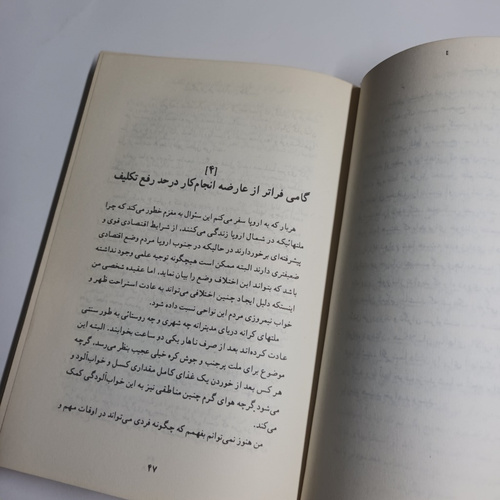 ٤
[۴]
گامی فراتر از عارضه انجام‌کار درحد رفع تکلیف
هربار که به اروپا سفر می‌کنم این سئوال به مغزم خطور می‌کند که چرا
ملتهائیکه در شمال اروپا زندگی می‌کنند. از شرایط اقتصادی قوی و
پیشرفته‌ای برخوردارند در حالیکه در جنوب اروپا مردم وضع اقتصادی
ضعیفتری دارند البته ممکن است هیچگونه توجیه علمی وجود نداشته
باشد که بتواند این اختلاف وضع را بیان نماید. اما عقیده شخصی من
اینستکه دلیل ایجاد چنین اختلافی می‌تواند به عادت استراحت ظهر و
خواب نیمروزی مردم این نواحی نسبت داده شود.
ملتهای کرانه دریای مدیترانه چه شهری و چه روستائی به طور سنتی
عادت کرده‌اند بعد از صرف ناهار یکی دو ساعت بخوابند. البته این
موضوع برای ملت پرجنب و جوش کره خیلی عجیب بنظر می‌رسد. گرچه
هر کس بعد از خوردن یک غذای کامل مقداری کسل و خواب‌آلود و
می‌شود گرچه هوای گرم چنین مناطقی نیز به این خواب‌آلودگی کمک
می‌کند.
من هنوز نمی‌توانم بفهمم که چگونه فردی می‌تواند در اوقات مهم و
۴۷